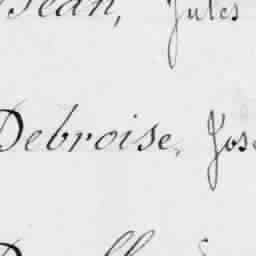 Jean, Jules
Debroise, Jos